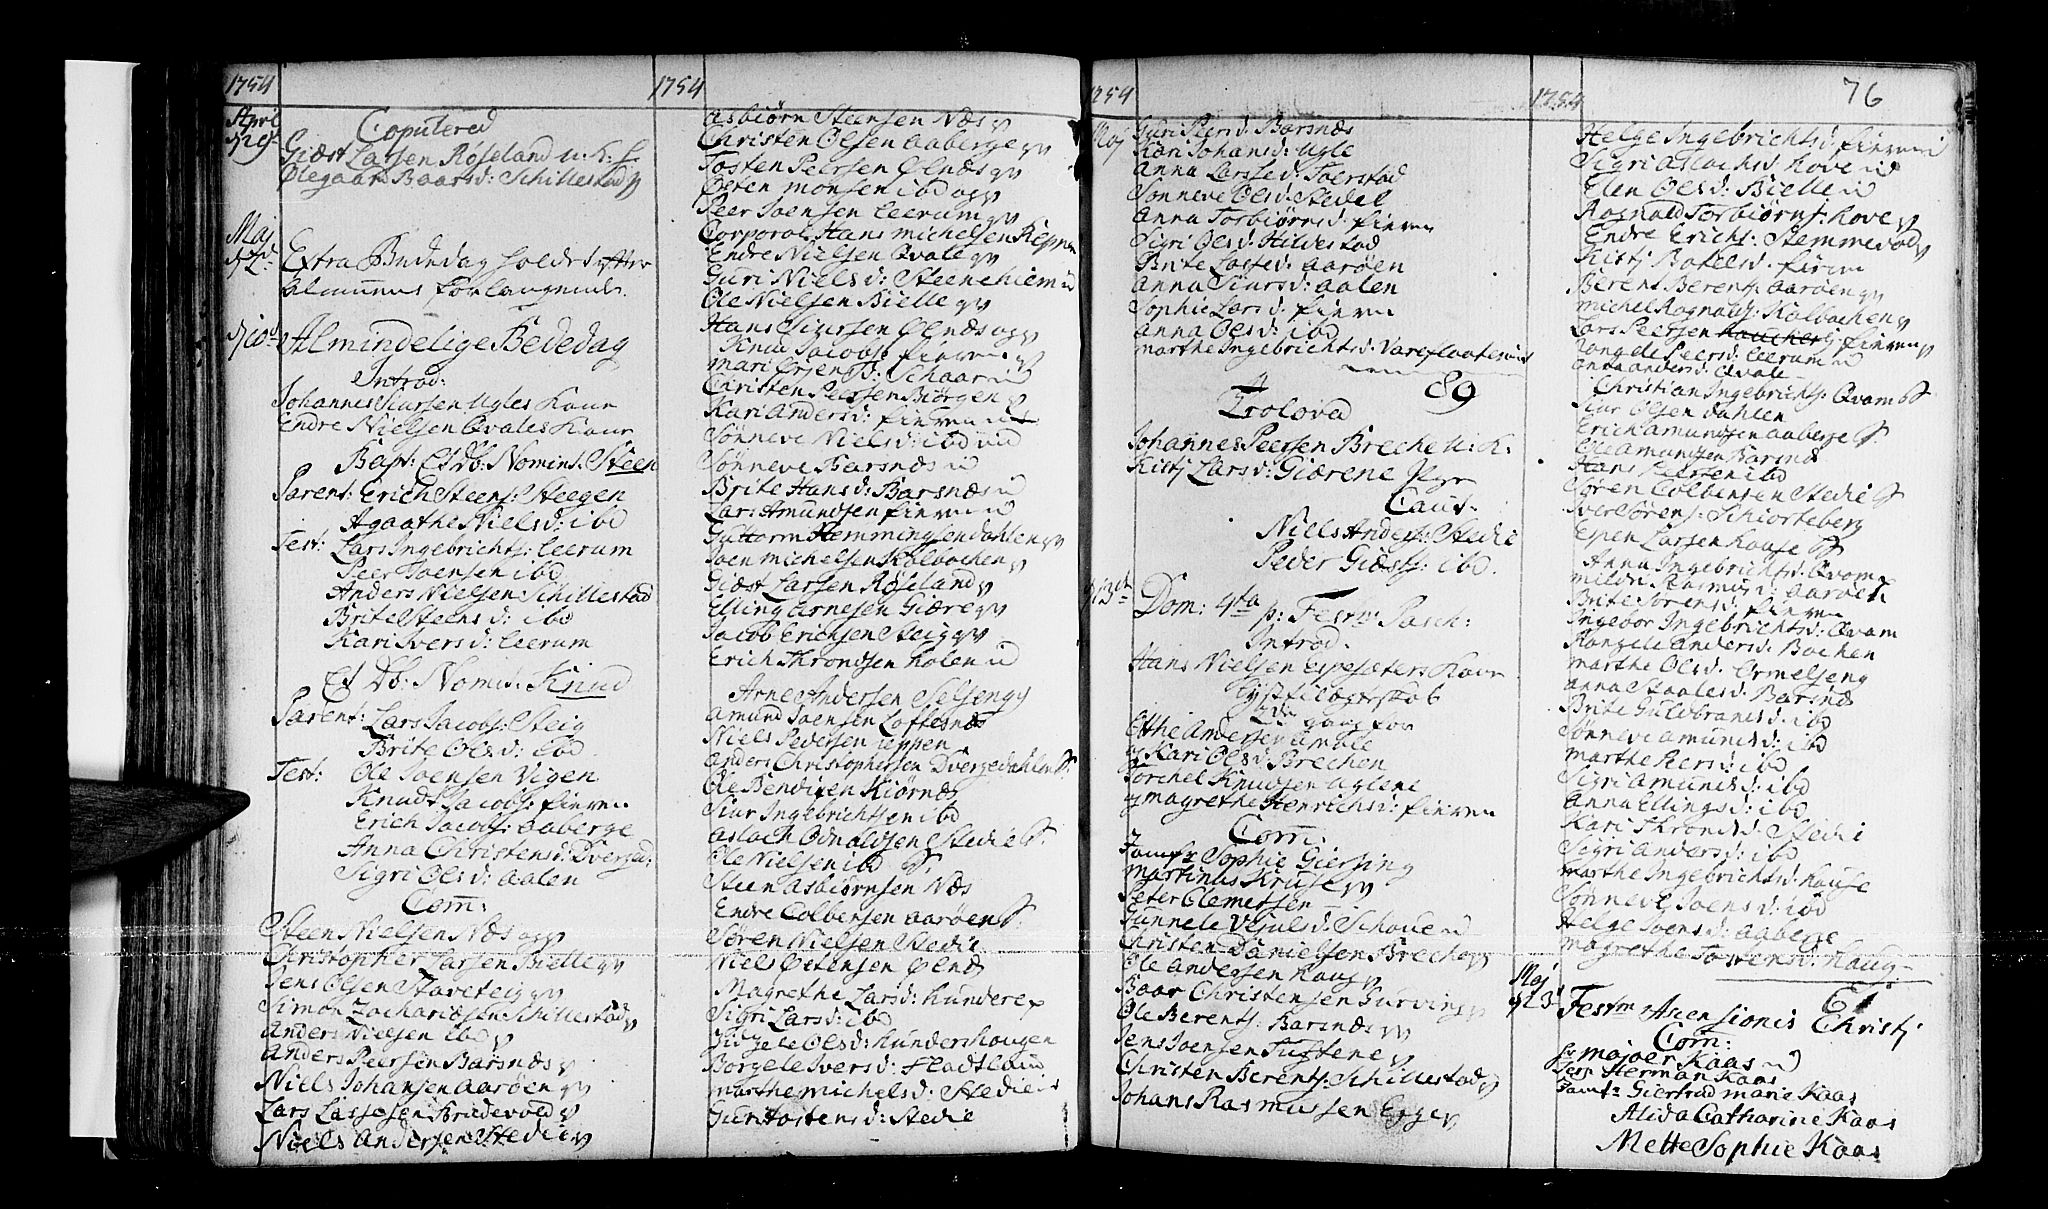 1754
April
Copulered
Giæst Larsen Røseland u. k. s.
Olegaar Baarsd: Schillestad
Maj
Extra Bededag holdet efter
Almuens forlangende.
Almindelige Bededag
Introd:
Johannes Siursen Ugles Kaar
Endre Nielsen Qvales Kaar
Bapt: Et Db: Nomine: Steen
Parent: Erich Steens: Steegen
Agaathe Nielsd: ibd
Test: Lars Ingebrichts: Leerum
Peer Joensen ibd
Anders Nielsen Schillestad
Brite Steensd: ibd
Kari Iversd: Leerum
Et Db: Nomin: Knud
Parent: Lars Jacobs: Steig
Brite Olsd: ibd
Test: Ole Joensen Vigen
Knudt Jacobs: fimren
Erich Jacobs: aaberge
Anna Christensd: Dvergsd:
Sigri Olsd: aalen
Com:
Steen Nielsen Næs
Christopher Larsen Bielle
Jens Olsen Staveteig
Simon Zachariæsen Schillestad
Anders Nielsen ibd
Anders Peersen Barsnæs
Niels Johansen aarøen
Lars Lassesen Bridevold
Niels Andersen Stedie
1754
Asbiørn Steensen Næs
Christen Olsen aaberge
Tosten Peersen Ølnæs
Østen Monsen ibd
Peer Joensen Leerum
Corporal Hans Michelsen
Endre Nielsen Qvale
Guri Nielsd: Steenehiem
Ole Nielsen Bielle
Hans Siursen Ølnæs
Knud Jacobs: fimren
Mari Ersensd: Schaar
Christen Peersen Biørgen
Kari Andersd: fimren
Sønneve Nielsd: ibd
Sønneve Barsnæs
Brite Hansd: Barsnæs
Lars Amundsen fimren
Guttorm Hemmingsen Dahlen
Joen Michelsen Kolbachen
Giæst Larsen Røseland
Elling Arnesen Giære
Jacob Erichsen Steig
Erich Throndsen Holen
Arne Andersen Selseng
Amund Joensen Loftesnæs
Niels Pedersen
Anders Christophersen Dvergedahlen
Ole Bendixen Kiørnæs
Siur Ingebrichtsen ibd
Aslach Odnaldsen Stedie
Ole Nielsen ibd
Steen Asbiørnsen Næs
Endre Colbensen aarøen
Søren Nielsen Stedie
Niels Østensen Ølnæs
Magrethe Larsd: Hundere
Sigri Larsd: ibd
Olsd: Hundershougen
Borgele Iversd: Fladtland
Marthe Michelsd: Stedie
Guri Tostensd: Stedie
1754
Maj
Guri Peersd: Barsnæs
Kari Johansd: Ugle
Anna Larsd: Foerstad
Sønneve Olsd: Stedie
Anna Torbiørnsd: fimren
Sigri Olsd: Hildestad
Brite Lassed: aarøen
Anna Siursd: aalen
Sophie Larsd: fimren
Anna Olsd: ibd
Marthe Ingebrichtsd:
89
Trolova
Johannes Peersen Breche u. k.
Kisti Larsd: Giærene Pge
Caut.
Niels Anders: Stedie
Peder Giæsts: ibd.
Dom: 4ta p: Festum Pasch:
Introd.
Hans Nielsen Kaar
Lystilægteskab
2den gang for
Andersen Amble
og Kari Olsd: Brechen
Torchel Knudsen Uglene
og Magrethe Henrichsd: fimren
Com:
Jomfr Sophie Giersing
Martinus Kruse
Peter Clemetsen
Gunnele Vejulsd: Schoue
Christen Danielsen Breche
Ole Andersen Haug
Baar Christensen Gurvin
Ole Berents: Barsnæs
Jens Joensen Tuftene
Christen Berents: Schillestad
Johans Rasmussen Egge
1754
76
Helge Ingebrichtsd: fimren
Sigri Aslachsd: Hove
Elen Olsd: Bielle
Rognald Torbiørns: Hove
Endre Erichs: Stemmevold
Kisti Botelsd: fimren
Berent Berents: aarøen
Michel Rognalds: Kolbachen
Lars Peersen fimren
Peersd: Leerum
Anna Andersd: Qvale
Christian Ingebrichts: Qvam
Siur Olsen Dahlen
Erich Amundsen aaberge
Ole Amundsen Barsnæs
Hans Larsen ibd
Søren Colbensen Stedie
Iver Sørens: Schiorteberg
Espen Larsen House
Anna Ingebrichtsd: Qvam
Mildri Rasmusd: aarøen
Brite Sørensd: fimren
Ingebor Ingebrichtsd: Qvam
Rangele Andersd: Bachen
Marthe Olsd: Ormelseng
Anna Staalesd: Barsnæs
Brite Guldbransd: ibd
Sønneve Amundsd: ibd
Marthe Persd: ibd
Sigri Amundsd: ibd
Anna Ellingsd: ibd
Kari Thronsd: Stedie
Sigri Andersd: ibd
Marthe Ingebrichtsd: House
Sønneve Joensd: ibd
Helge Joensd: aaberge
Magrethe Tostensd: Haug
61
Maj
Festum Ascensionis Christi
Com:
Majoer Kaas
Herman Kaas
Jomfr Giertrud Marie Kaas
Alida Catharine Kaas
Mette Sophie Kaas